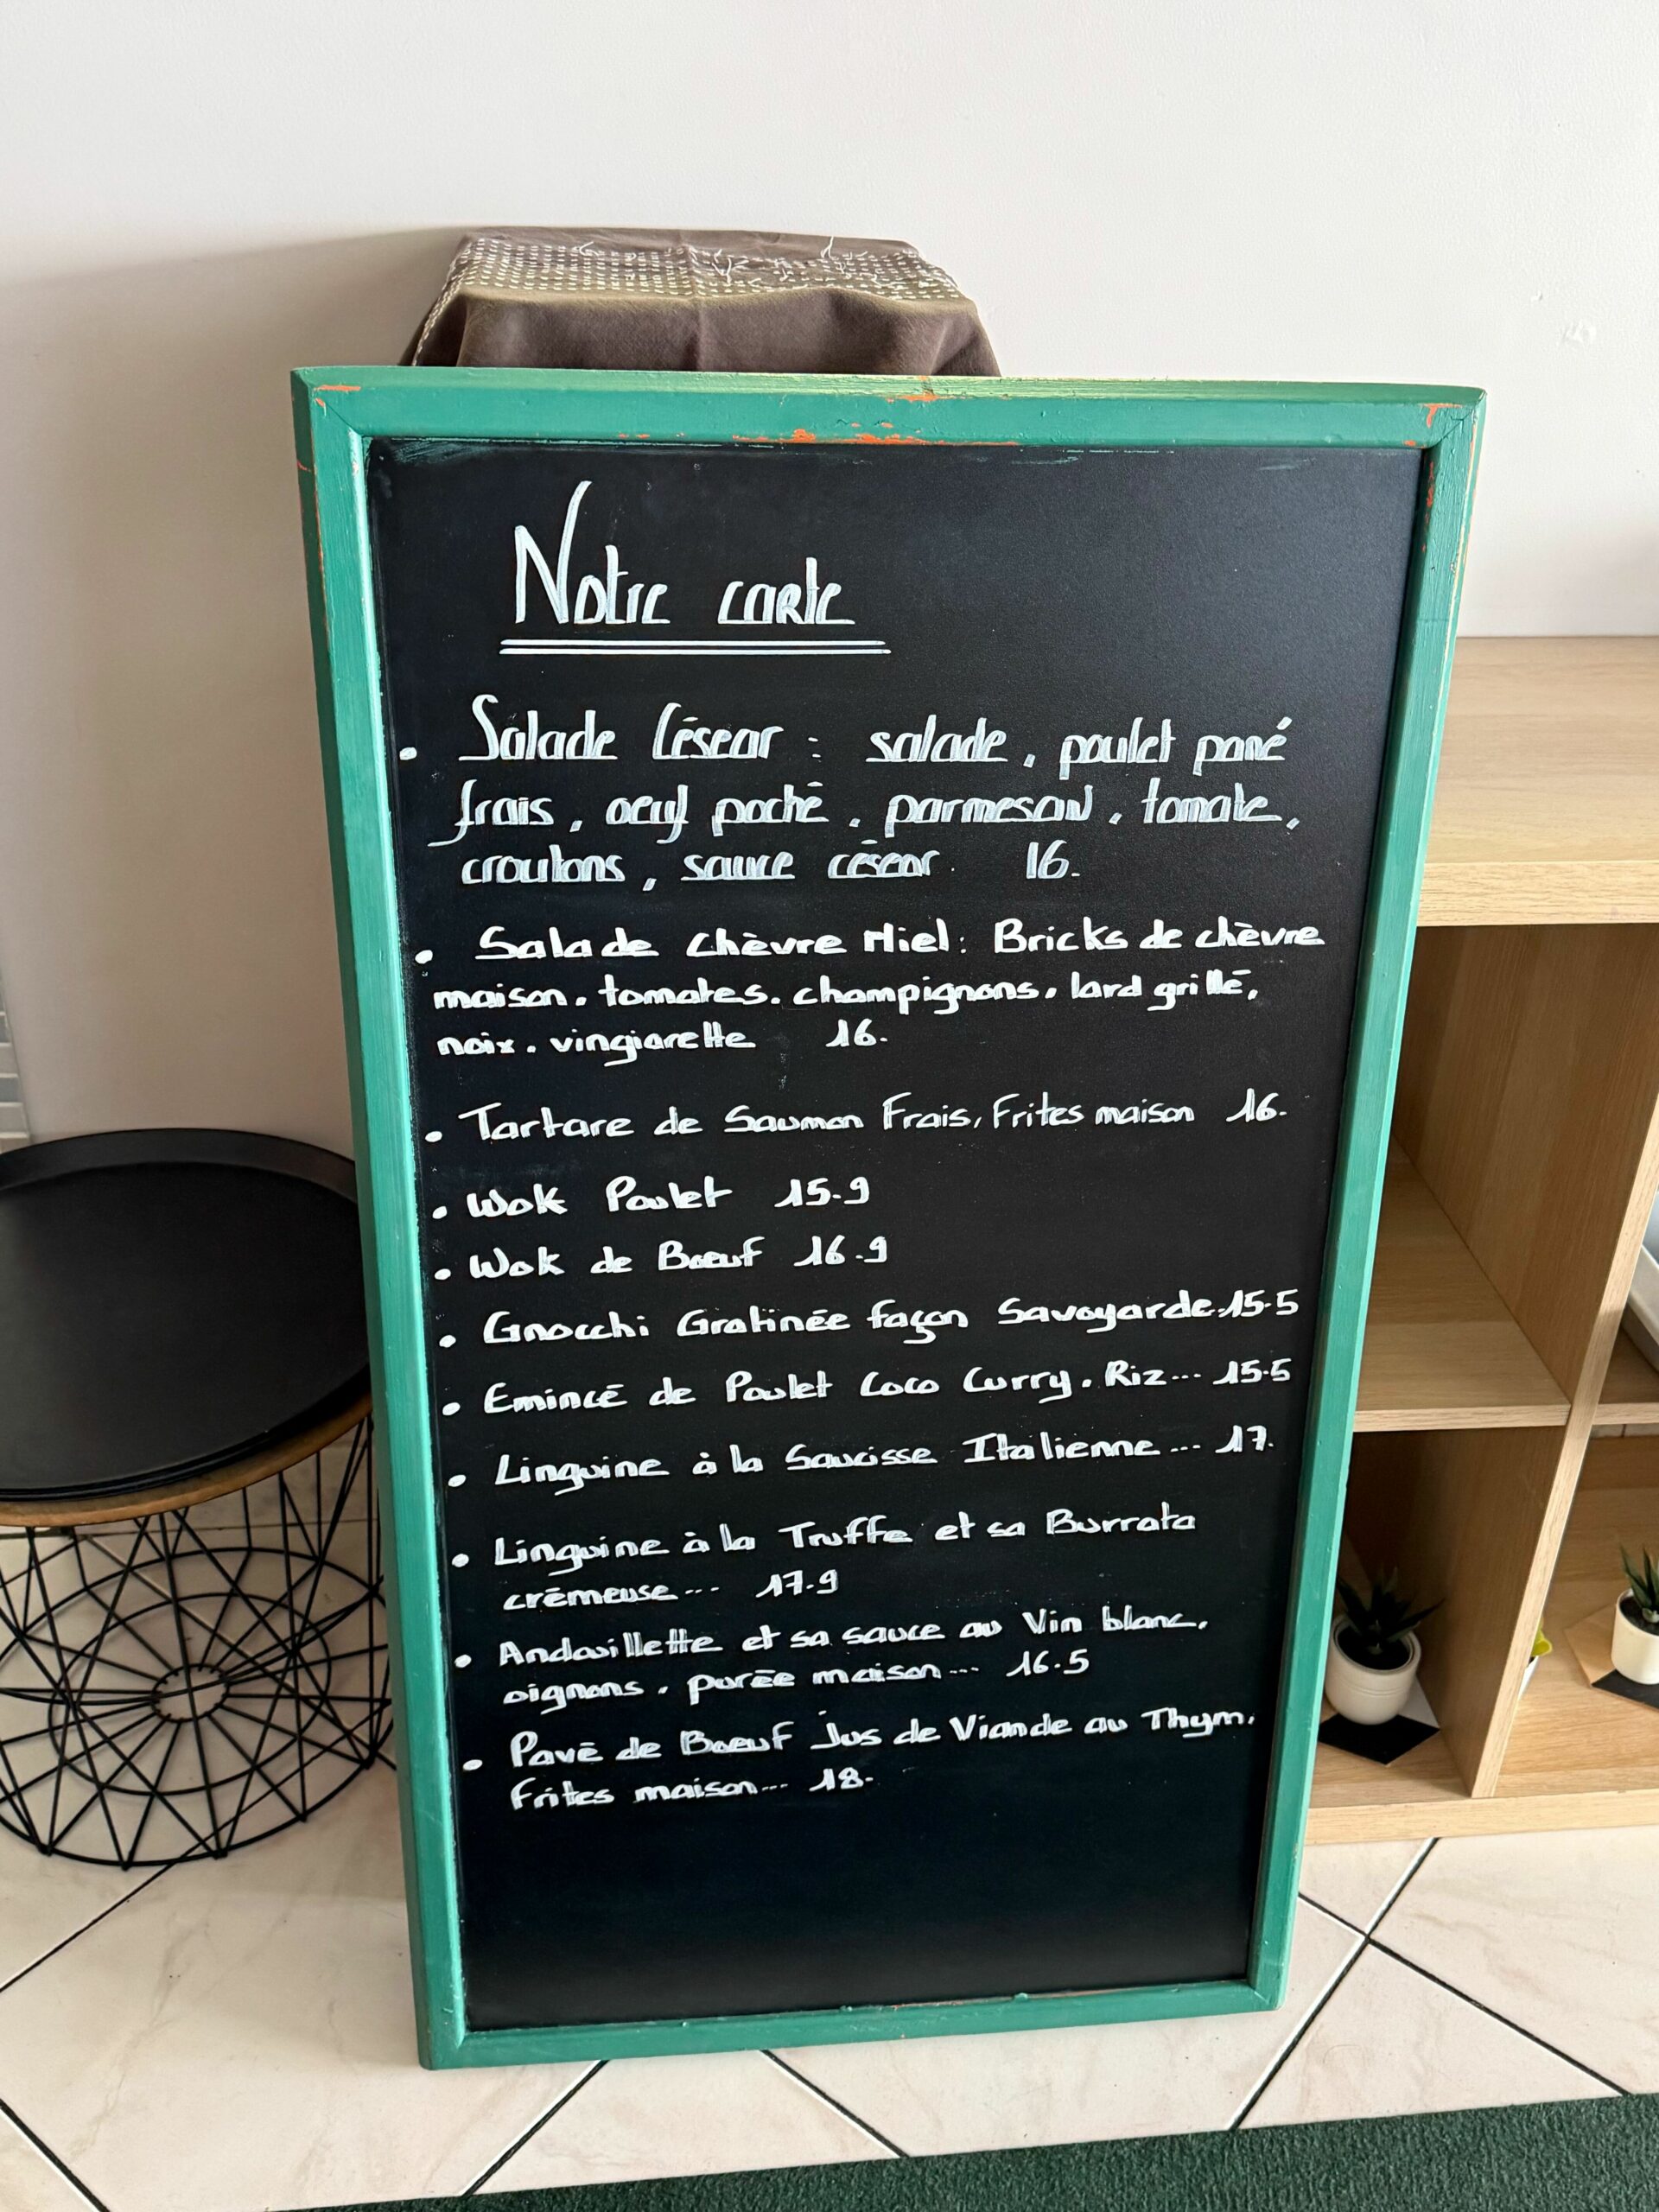 Notre carte
• Salade César : salade, poulet pané
frais, oeuf poché, parmesan, tomate,
croutons, sauce césar. 16.
• Salade Chèvre Miel : Bricks de chèvre
maison, tomates, champignons, lard grillé,
noix, vingiarette 16.
• Tartare de Saumon Frais, Frites maison 16.
• Wok Poulet 15.9
• Wok de Boeuf 16.9
• Gnocchi Gratinée façon Savoyarde..15.5
• Emincé de Poulet Coco Curry, Riz... 15.5
• Linguine à la Saucisse Italienne... 17.
• Linguine à la Truffe et sa Burrata
crémeuse... 17.9
• Andouillette et sa sauce au Vin blanc,
oignons, purée maison... 16.5
• Pavé de Boeuf Jus de Viande au Thym,
frites maison... 18.